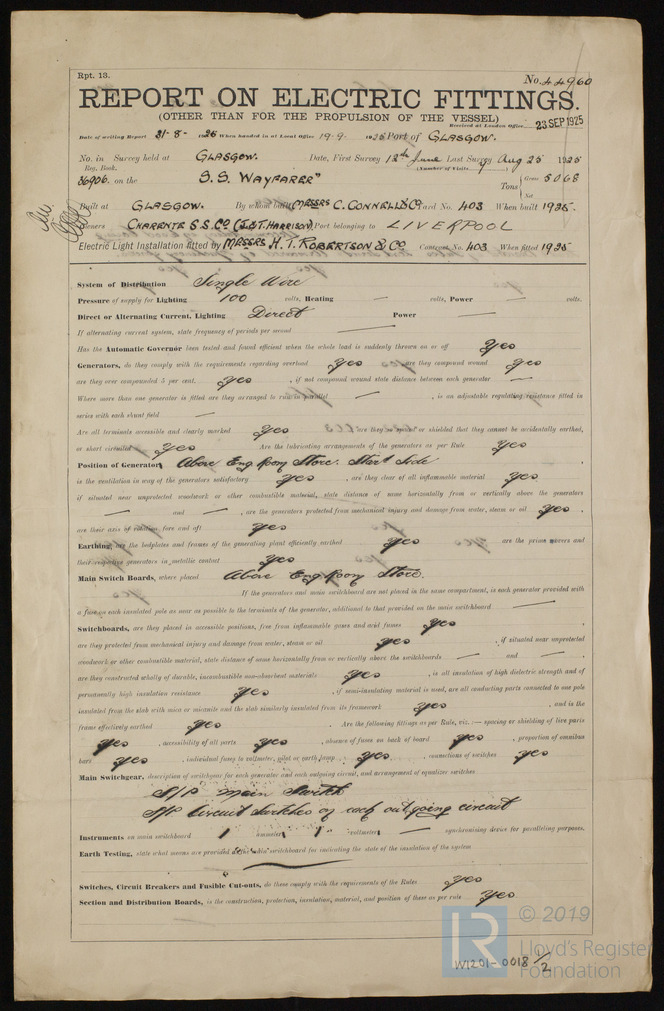 Rpt. 13.
No. 44960
REPORT ON ELECTRIC FITTINGS.
(OTHER THAN FOR THE PROPULSION OF THE VESSEL)
Received at London Office 23 SEP 1925
Date of writing Report 21-8- 1925 When handed in at Local Office 19-9- 1925 Port of GLASGOW.
No. in Survey held at GLASGOW. Date, First Survey 12th June Last Survey Aug 25 1925
Reg. Book. (Number of Visits )
36906. on the S.S. WAYFARER" Tons { Gross 5068 Net
Built at GLASGOW. By whom built MESSRS C. CONNELL & Co Yard No. 403 When built 1925.
Owners CHARENTE S.S. Co (J & T. HARRISON) Port belonging to LIVERPOOL
Electric Light Installation fitted by MESSRS H. T. ROBERTSON & Co Contract No. 403 When fitted 1925
System of Distribution Single Wire
Pressure of supply for Lighting 100 volts, Heating — volts, Power — volts.
Direct or Alternating Current, Lighting Direct Power —
If alternating current system, state frequency of periods per second —
Has the Automatic Governor been tested and found efficient when the whole load is suddenly thrown on or off Yes
Generators, do they comply with the requirements regarding overload Yes , are they compound wound Yes
are they over compounded 5 per cent. Yes , if not compound wound state distance between each generator —
Where more than one generator is fitted are they arranged to run in parallel — , is an adjustable regulating resistance fitted in
series with each shunt field —
Are all terminals accessible and clearly marked Yes , are they so spaced or shielded that they cannot be accidentally earthed,
or short circuited Yes Are the lubricating arrangements of the generators as per Rule Yes
Position of Generators Above Eng Room Store. Start Side
is the ventilation in way of the generators satisfactory Yes , are they clear of all inflammable material Yes
if situated near unprotected woodwork or other combustible material, state distance of same horizontally from or vertically above the generators
— and — , are the generators protected from mechanical injury and damage from water, steam or oil Yes ,
are their axes of rotation fore and aft Yes
Earthing, are the bedplates and frames of the generating plant efficiently earthed Yes are the prime movers and
their respective generators in metallic contact Yes
Main Switch Boards, where placed Above Eng Room Store.
If the generators and main switchboard are not placed in the same compartment, is each generator provided with
a fuse on each insulated pole as near as possible to the terminals of the generator, additional to that provided on the main switchboard —
Switchboards, are they placed in accessible positions, free from inflammable gases and acid fumes Yes
are they protected from mechanical injury and damage from water, steam or oil Yes , if situated near unprotected
woodwork or other combustible material, state distance of same horizontally from or vertically above the switchboards — and — ,
are they constructed wholly of durable, incombustible non-absorbent materials Yes , is all insulation of high dielectric strength and of
permanently high insulation resistance Yes , if semi-insulating material is used, are all conducting parts connected to one pole
insulated from the slab with mica or micanite and the slab similarly insulated from its framework Yes , and is the
frame effectively earthed Yes . Are the following fittings as per Rule, viz.:— spacing or shielding of live parts
Yes , accessibility of all parts Yes , absence of fuses on back of board Yes , proportion of omnibus
bars Yes , individual fuses to voltmeter, pilot or earth lamp Yes , connections of switches Yes
Main Switchgear, description of switchgear for each generator and each outgoing circuit, and arrangement of equalizer switches
S/P Main Switch
S/P Circuit Switches on each out going circuit
Instruments on main switchboard 1 ammeter 1 voltmeter — synchronising device for paralleling purposes.
Earth Testing, state what means are provided at the main switchboard for indicating the state of the insulation of the system
—
Switches, Circuit Breakers and Fusible Cut-outs, do these comply with the requirements of the Rules Yes
Section and Distribution Boards, is the construction, protection, insulation, material, and position of these as per rule Yes.
LR © 2019
Lloyd's Register
Foundation
W1201-0018 1/2